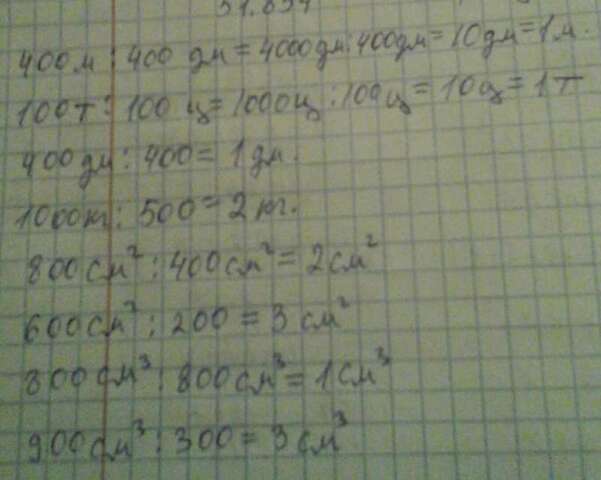 400м : 400 дм = 4000дм : 400дм = 10дм = 1м.
100т : 100 ц = 1000ц : 100ц = 10ц = 1т
400дм : 400 = 1дм.
1000кг : 500 = 2 кг.
800см² : 400см² = 2см²
600см² : 200 = 3 см²
800см³ : 800см³ = 1см³
900см³ : 300 = 3см³